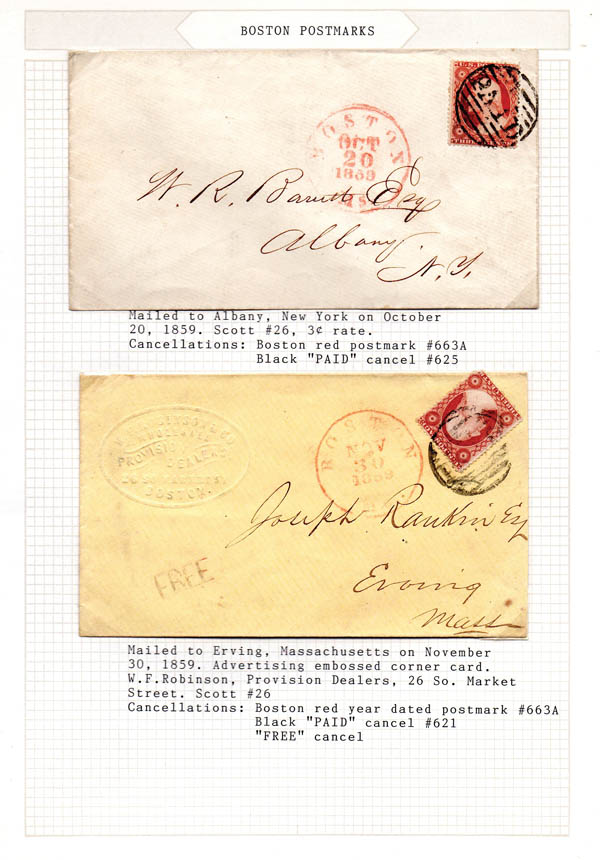 BOSTON POSTMARKS
BOSTON
OCT
20
1859
PAID
W. R. Barrett Esq
Albany
N.Y.
Mailed to Albany, New York on October
20, 1859. Scott #26, 3¢ rate.
Cancellations: Boston red postmark #663A
Black "PAID" cancel #625
PROVISION
DEALERS
BOSTON.
BOSTON
NOV
30
1859
Joseph Rankin Esq
FREE
Erving
Mass
Mailed to Erving, Massachusetts on November
30, 1859. Advertising embossed corner card.
W.F.Robinson, Provision Dealers, 26 So. Market
Street. Scott #26
Cancellations: Boston red year dated postmark #663A
Black "PAID" cancel #621
"FREE" cancel